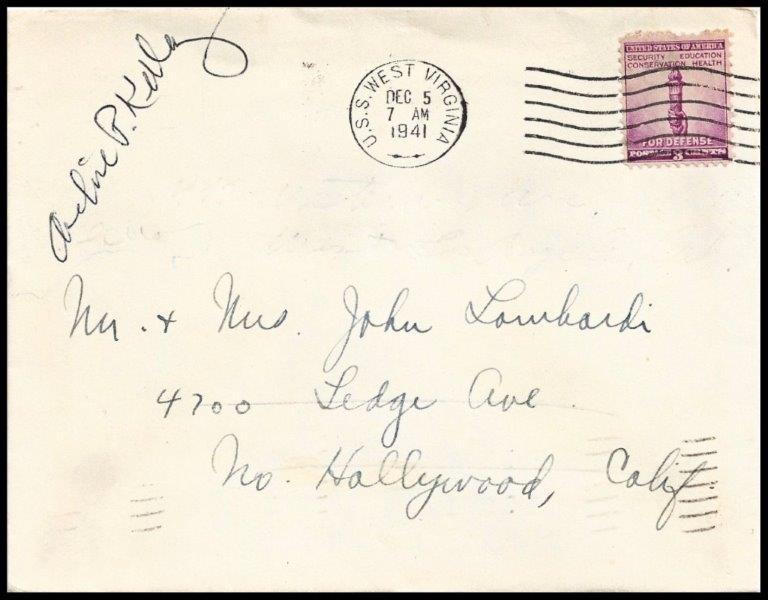 Archie P. Kelley
U.S.S. WEST VIRGINIA
DEC 5
7 AM
1941
UNITED STATES OF AMERICA
SECURITY EDUCATION
CONSERVATION HEALTH
FOR DEFENSE
POSTAGE 3 CENTS
Mr. & Mrs. John Lombardi
4700 Ledge Ave.
No. Hollywood, Calif.